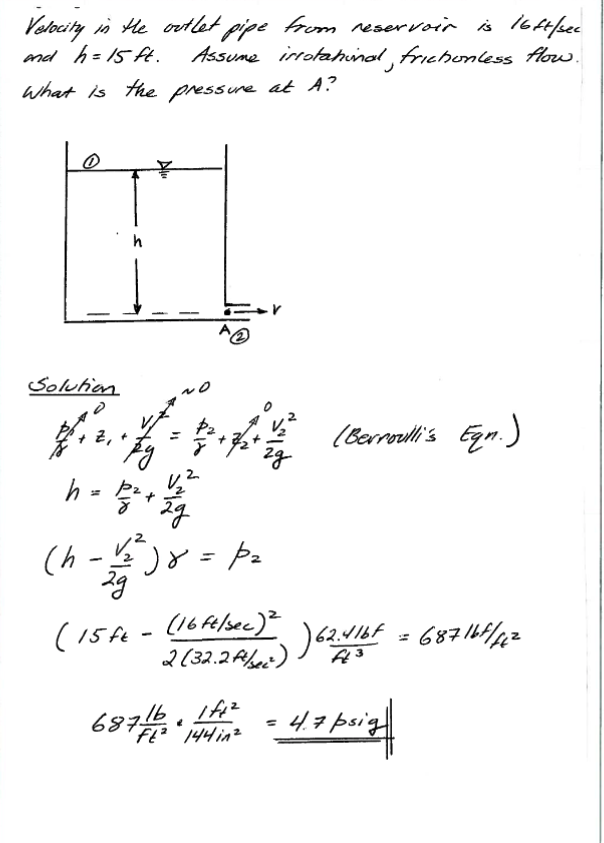 Velocity in the outlet pipe from reservoir is 16 ft/sec
and h = 15 ft. Assume irrotational, frictionless flow.
What is the pressure at A?
①
h
V
A ②
Solution
p₁/γ ↗0 + z₁ + V₁²/2g ↗~0 = p₂/γ + z₂ ↗0 + V₂²/2g (Bernoulli's Eqn.)
h = p₂/γ + V₂²/2g
(h - V₂²/2g) γ = p₂
(15 ft - (16 ft/sec)²/2(32.2 ft/sec²)) 62.4 lbf/ft³ = 687 lbf/ft²
687 lb/ft² • 1 ft²/144 in² = 4.7 psig